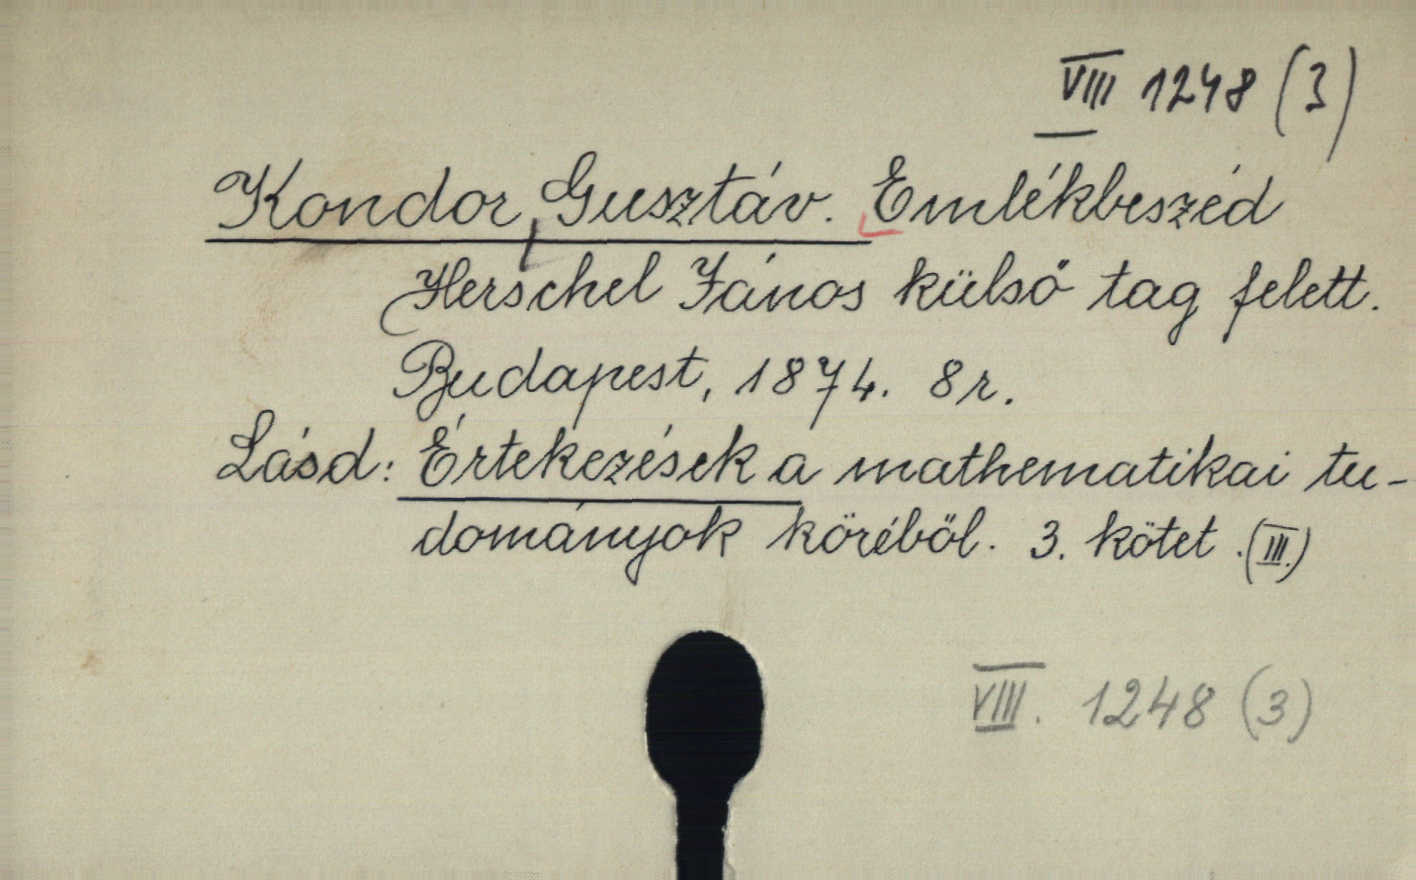 VIII 1248 (3)
Kondor, Gusztáv. Emlékbeszéd
Herschel János külső tag felett.
Budapest, 1874. 8r.
Lásd: Értekezések a mathematikai tu-
dományok köréből. 3. kötet. (III.)
VIII. 1248 (3)